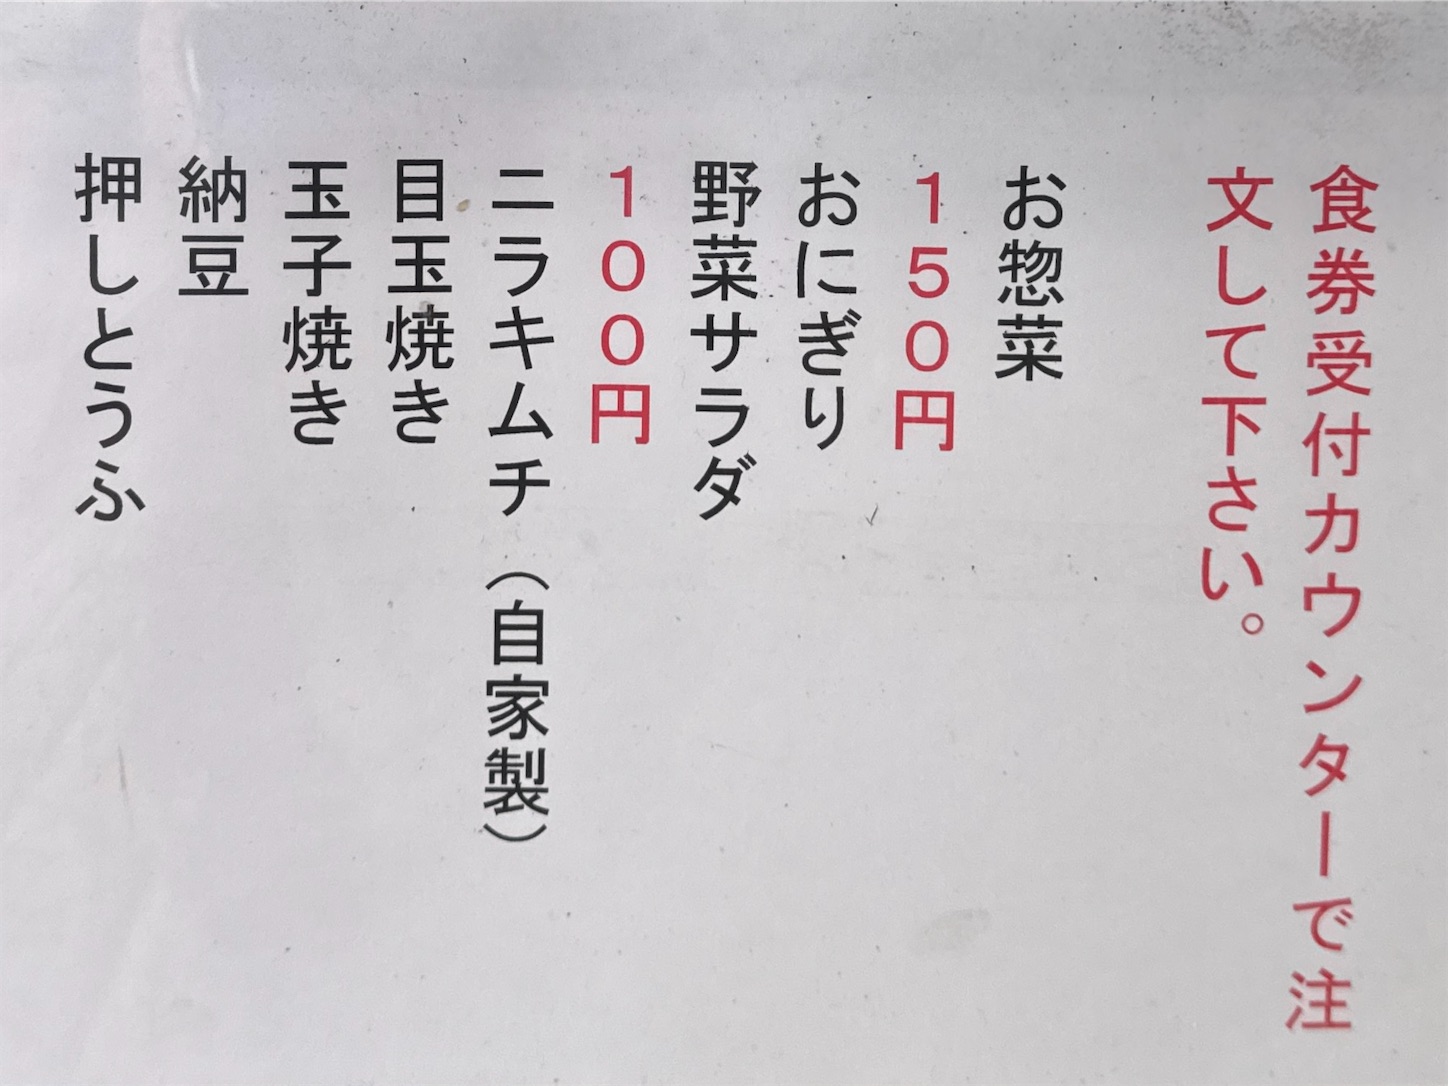 食券受付カウンターで注
文して下さい。
お惣菜
１５０円
おにぎり
野菜サラダ
１００円
ニラキムチ（自家製）
目玉焼き
玉子焼き
納豆
押しとうふ